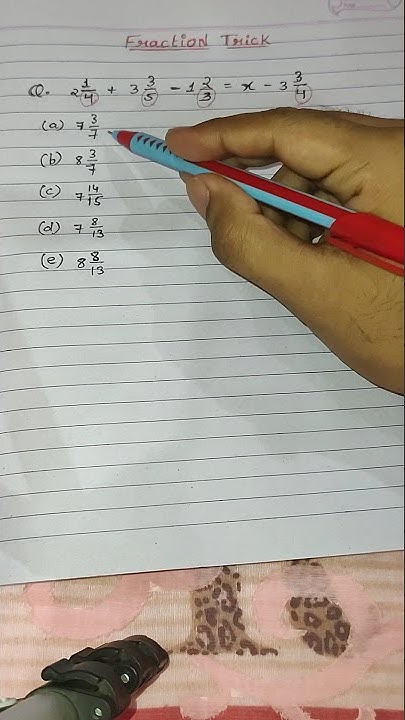 Fraction Trick
Q. 2 1/4 + 3 3/5 - 1 2/3 = x - 3 3/4
(a) 7 3/7
(b) 8 3/7
(c) 7 14/15
(d) 7 8/13
(e) 8 8/13